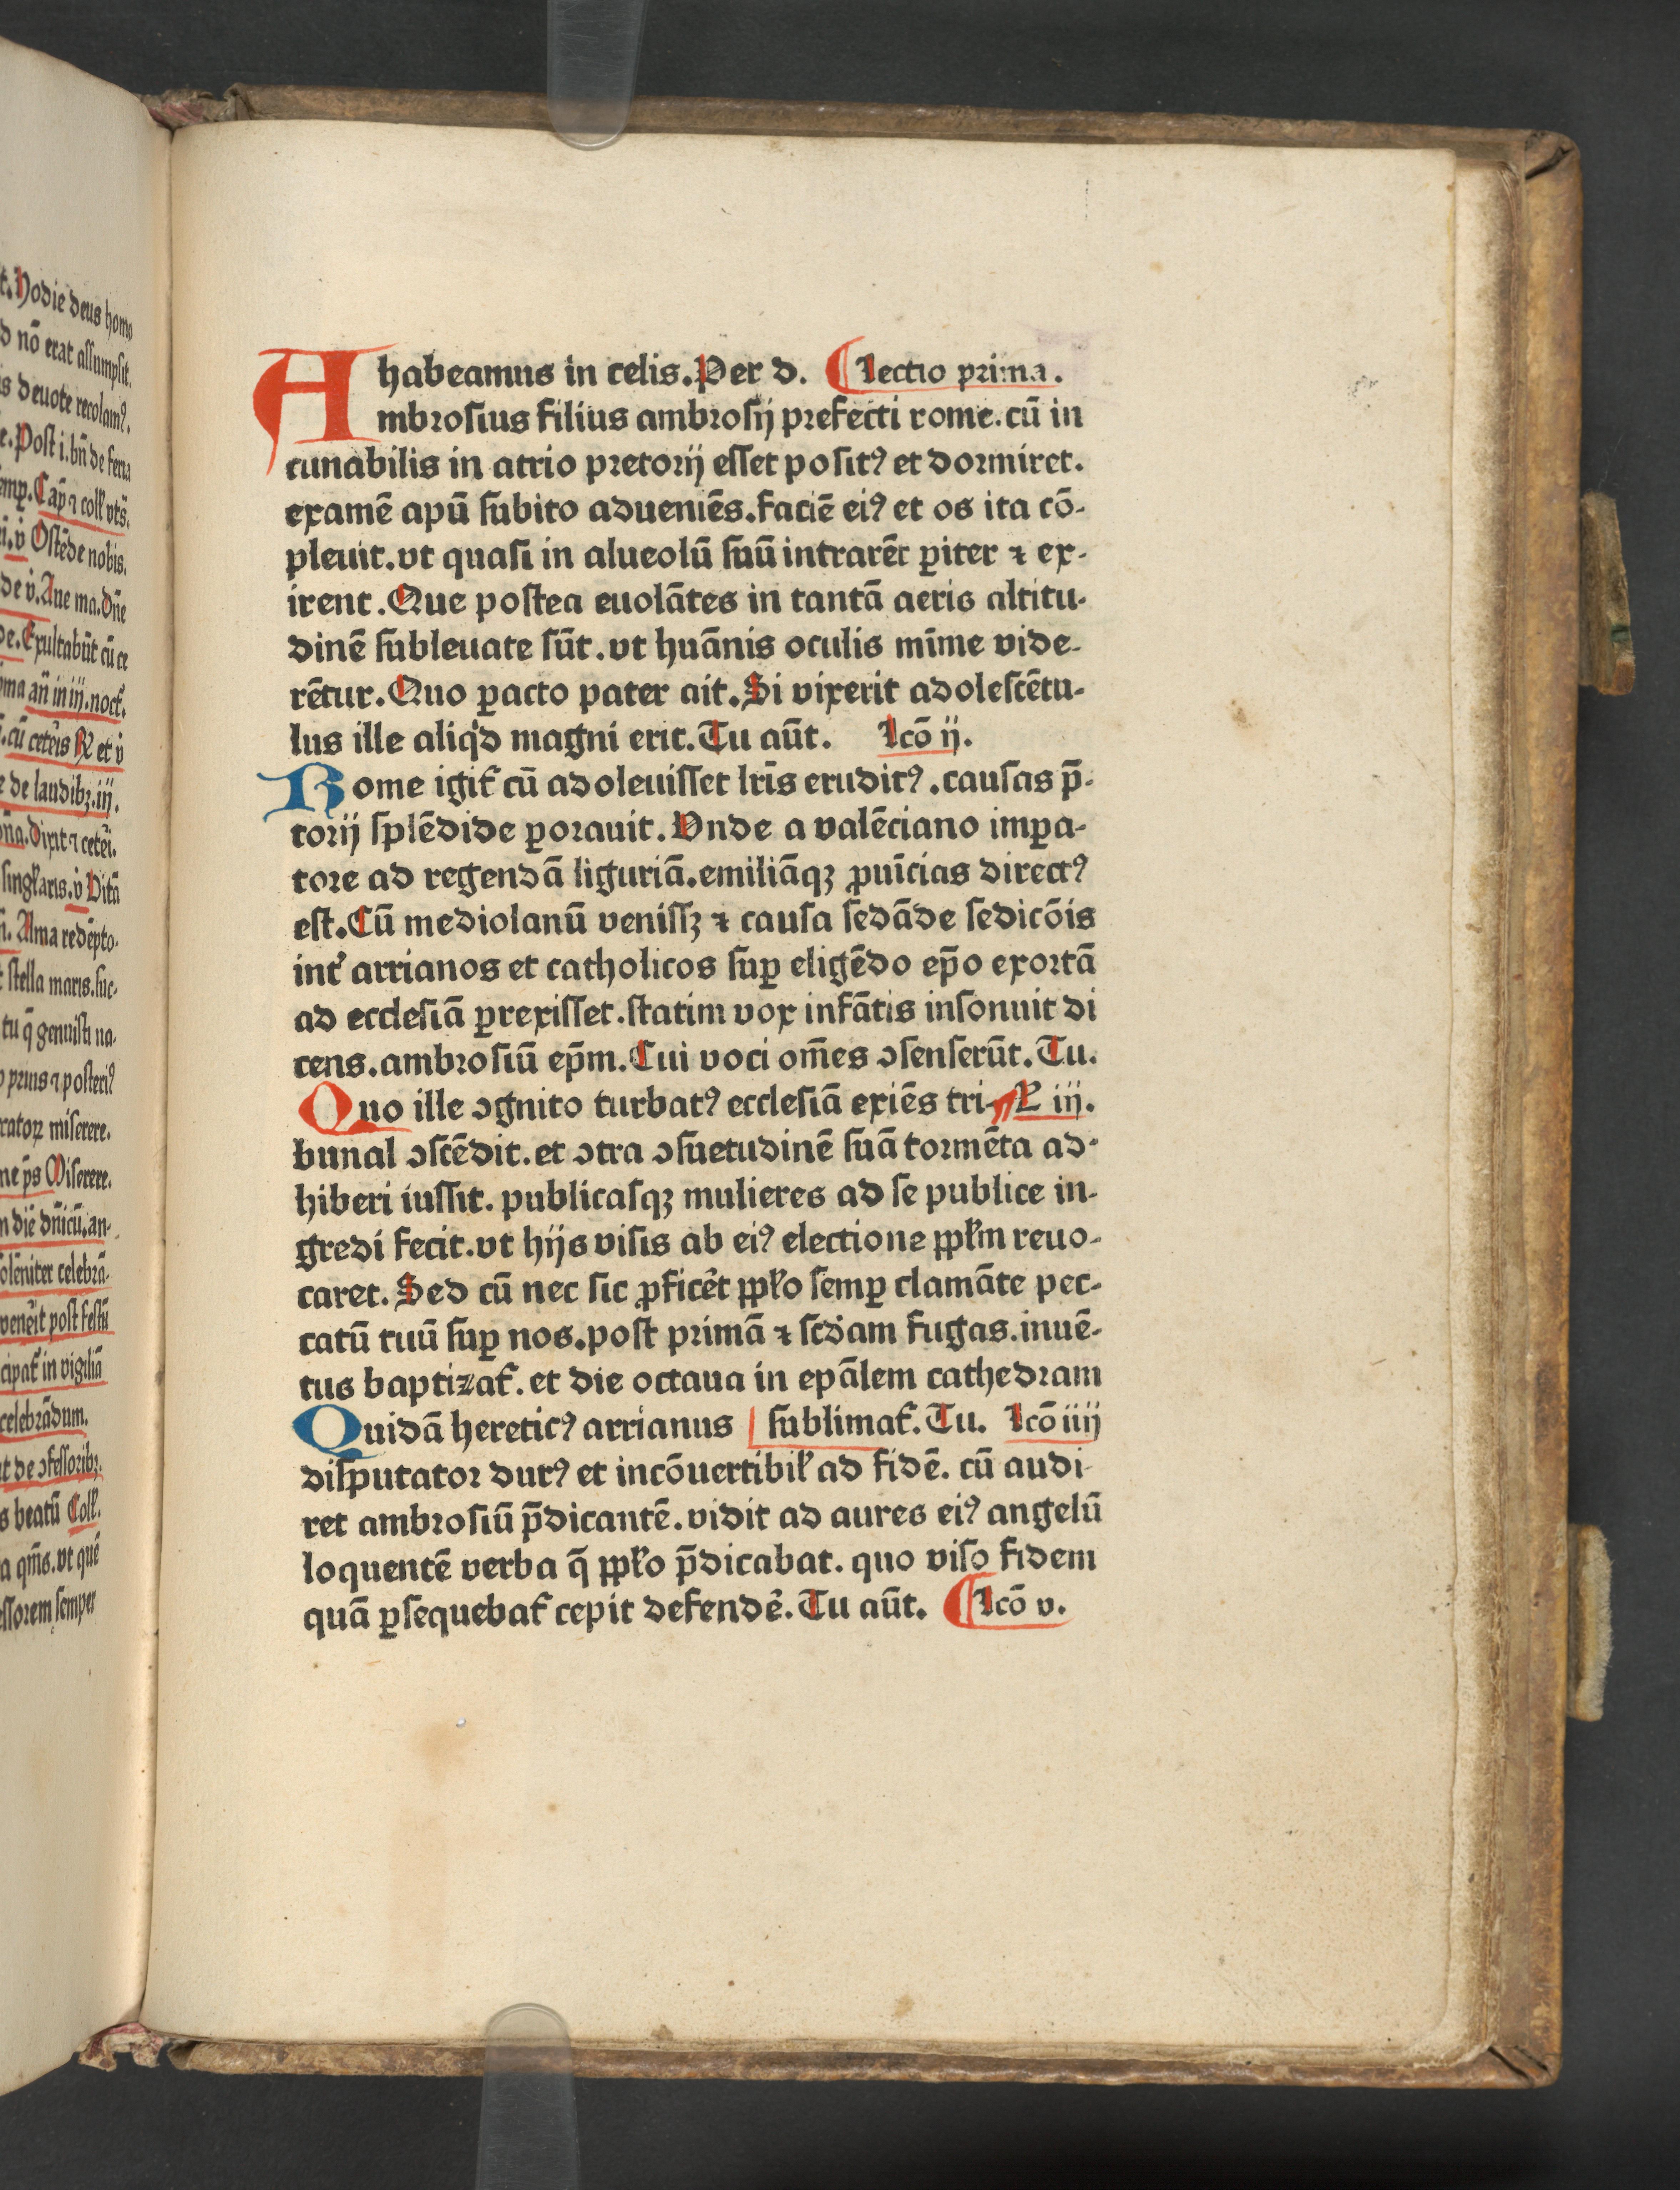 t. Hodie deus homo
d nō erat assumpsit.
is deuote recolamꝰ.
e. Post i. bn̄ de fena
emꝑ. Cap̄ ⁊ coll' vts̄.
i. v̇ Ostēde nobis.
de v̇. Aue ma. Dn̄e
de. Exultabūt cū ce
ma an̄ in iij. noct'.
cū ceteīs R et v̇
e de laudibꝫ. iij.
ōna. Dixit ⁊ ceteī.
singl'aris. v̇ Ditā
n̄. Alma redēpto-
stella maris. suc-
tu q̄ genuisti na-
prius ⁊ posteriꝰ
ratoꝝ miserere.
ne p̄s Miserere.
n diē dn̄icū. an-
oleniter celebrā-
venerit post festū
cipat' in vigiliā
celebrādum.
t de ↄfessoribꝫ.
s beatū Coll'.
a qm̄s. vt quē
essorem semper
habeamus in celis. Per d. lectio prima.
Ambrosius filius ambrosij prefecti rome. cū in
cunabilis in atrio pretorij esset positꝰ et dormiret.
examē apū subito adueniēs. faciē eiꝰ et os ita cō-
pleuit. vt quasi in alueolū suū intrarēt ꝑiter ⁊ ex-
irent. Que postea euolātes in tantā aeris altitu-
dinē subleuate sūt. vt huānis oculis mīme vide-
rētur. Quo ꝑacto pater ait. Si vixerit adolescētu-
lus ille aliq'd magni erit. Tu aūt. lcō ij.
Rome igit' cū adoleuisset lrīs eruditꝰ. causas p̄-
torij splēdide ꝑorauit. Unde a valēciano imꝑa-
tore ad regendā liguriā. emiliāqꝫ ꝓuīcias directꝰ
est. Cū mediolanū venissꝫ ⁊ causa sedāde sedicōis
int' arrianos et catholicos suꝑ eligēdo ep̄o exortā
ad ecclesiā ꝑrexisset. statim vox infātis insonuit di
cens. ambrosiū ep̄m. Cui voci om̄es ↄsenserūt. Tu.
Quo ille ↄgnito turbatꝰ ecclesiā exiēs tri- L iij.
bunal ↄscēdit. et ↄtra ↄsuetudinē suā tormēta ad-
hiberi iussit. publicasqꝫ mulieres ad se publice in-
gredi fecit. vt hijs visis ab eiꝰ electione ppl'm reuo-
caret. Sed cū nec sic ꝓficēt ppl'o semꝑ clamāte pec-
catū tuū suꝑ nos. post primā ⁊ scdam fugas. inuē-
tus baptizat'. et die octaua in epālem cathedram
Quidā hereticꝰ arrianus sublimat'. Tu. lcō iiij
disputator durꝰ et incōuertibil' ad fidē. cū audi
ret ambrosiū p̄dicantē. vidit ad aures eiꝰ angelū
loquentē verba q̄ ppl'o p̄dicabat. quo viso fidem
quā ꝑsequebat' cepit defendē. Tu aūt. lcō v.